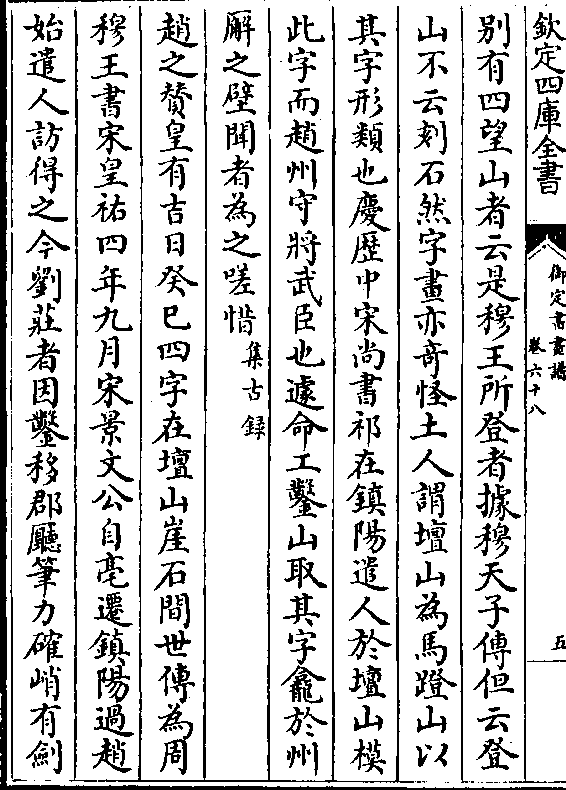 欽定四庫全書
御定書畫譜
卷六十八
五
別有四望山者云是穆王所登者據穆天子傳但云登
山不云刻石然字畫亦奇怪土人謂壇山為馬蹬山以
其字形類也慶歷中宋尚書祁在鎮陽遣人於壇山模
此字而趙州守將武臣也遽命工鑿山取其字龕於州
廨之壁聞者為之嗟惜集古録
趙之賛皇有吉日癸巳四字在壇山崖石間世傳為周
穆王書宋皇祐四年九月宋景文公自亳遷鎮陽過趙
始遣人訪得之今劉莊者因鑿移郡廳筆力確峭有劍